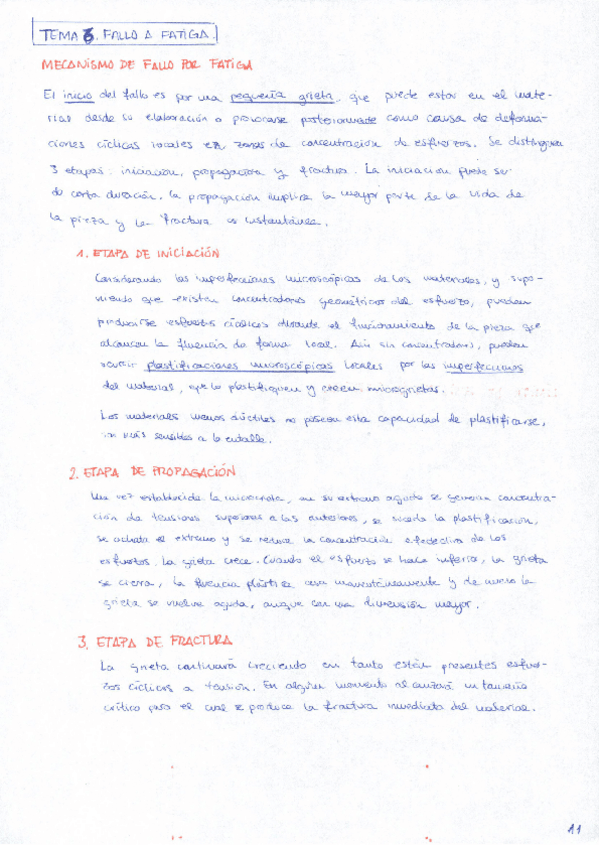 TEMA 3. FALLO A FATIGA.
MECANISMO DE FALLO POR FATIGA
El inicio del fallo es por una pequeña grieta, que puede estar en el mate-
rial desde su elaboración o provocarse posteriormente como causa de deforma-
ciones cíclicas locales en zonas de concentración de esfuerzos. Se distinguen
3 etapas: iniciación, propagación y fractura. La iniciación puede ser
de corta duración, la propagación implica la mayor parte de la vida de
la pieza y la fractura es instantánea.
1. ETAPA DE INICIACIÓN
Considerando las imperfecciones microscópicas de los materiales, y supo-
niendo que existen concentradores geométricos del esfuerzo, pueden
producirse esfuerzos cíclicos durante el funcionamiento de la pieza que
alcancen la fluencia de forma local. Aún sin concentradores, pueden
ocurrir plastificaciones microscópicas locales por las imperfecciones
del material, que lo plastifiquen y creen microgrietas.
Los materiales menos dúctiles no poseen esta capacidad de plastificarse,
son más sensibles a la entalla.
2. ETAPA DE PROPAGACIÓN
Una vez establecida la microgrieta, en su extremo agudo se generan concentra-
ción de tensiones superiores a las anteriores, se suceda la plastificación,
se achata el extremo y se reduce la concentración efectiva de los
esfuerzos. La grieta crece. Cuando el esfuerzo se hace inferior, la grieta
se cierra, la fluencia plástica cesa momentáneamente y de nuevo la
grieta se vuelve aguda, aunque con una dimensión mayor.
3. ETAPA DE FRACTURA
La grieta continuará creciendo en tanto estén presentes esfuer-
zos cíclicos a tensión. En algún momento alcanzará un tamaño
crítico para el cual se produce la fractura inmediata del material.
11